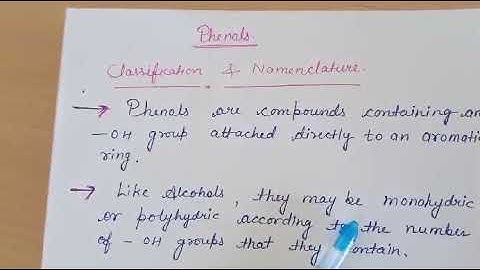 Phenols.
Classification & Nomenclature.
→ Phenols are compounds containing an
-OH group attached directly to an aromatic
ring.
→ Like Alcohols, they may be monohydric
or polyhydric according to the number
of -OH groups that they contain.